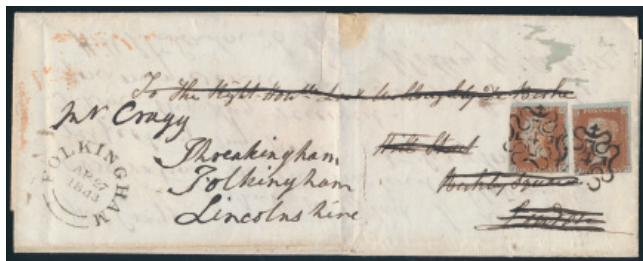 To The Right Hon.ble Lord Willoughby de
Mr Cragg
Threakingham
Folkingham
Lincolnshire
Street
Berkley Square
London
FOLKINGHAM
AP 27
1843